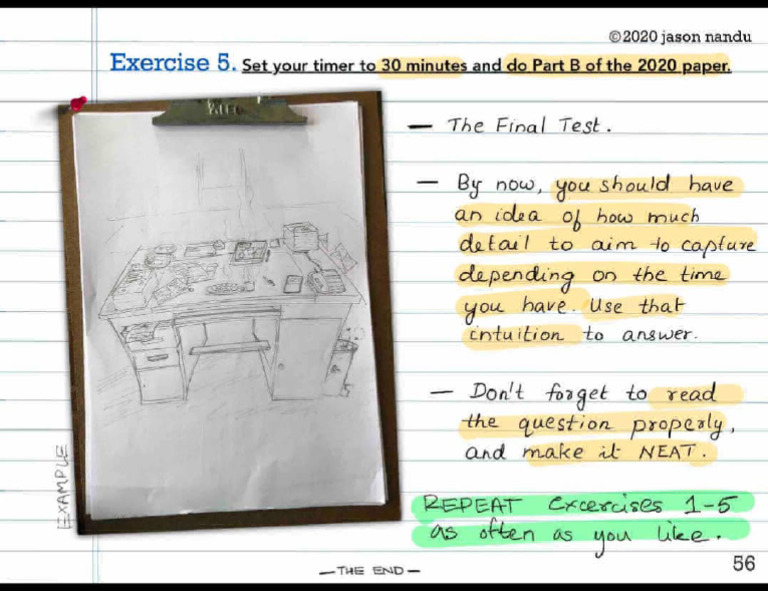 ©2020 jason nandu
Exercise 5. Set your timer to 30 minutes and do Part B of the 2020 paper.
— The Final Test.
— By now, you should have
an idea of how much
detail to aim to capture
depending on the time
you have. Use that
intuition to answer.
— Don't forget to read
the question properly,
and make it NEAT.
REPEAT excercises 1-5
as often as you like.
EXAMPLE
— THE END —
56